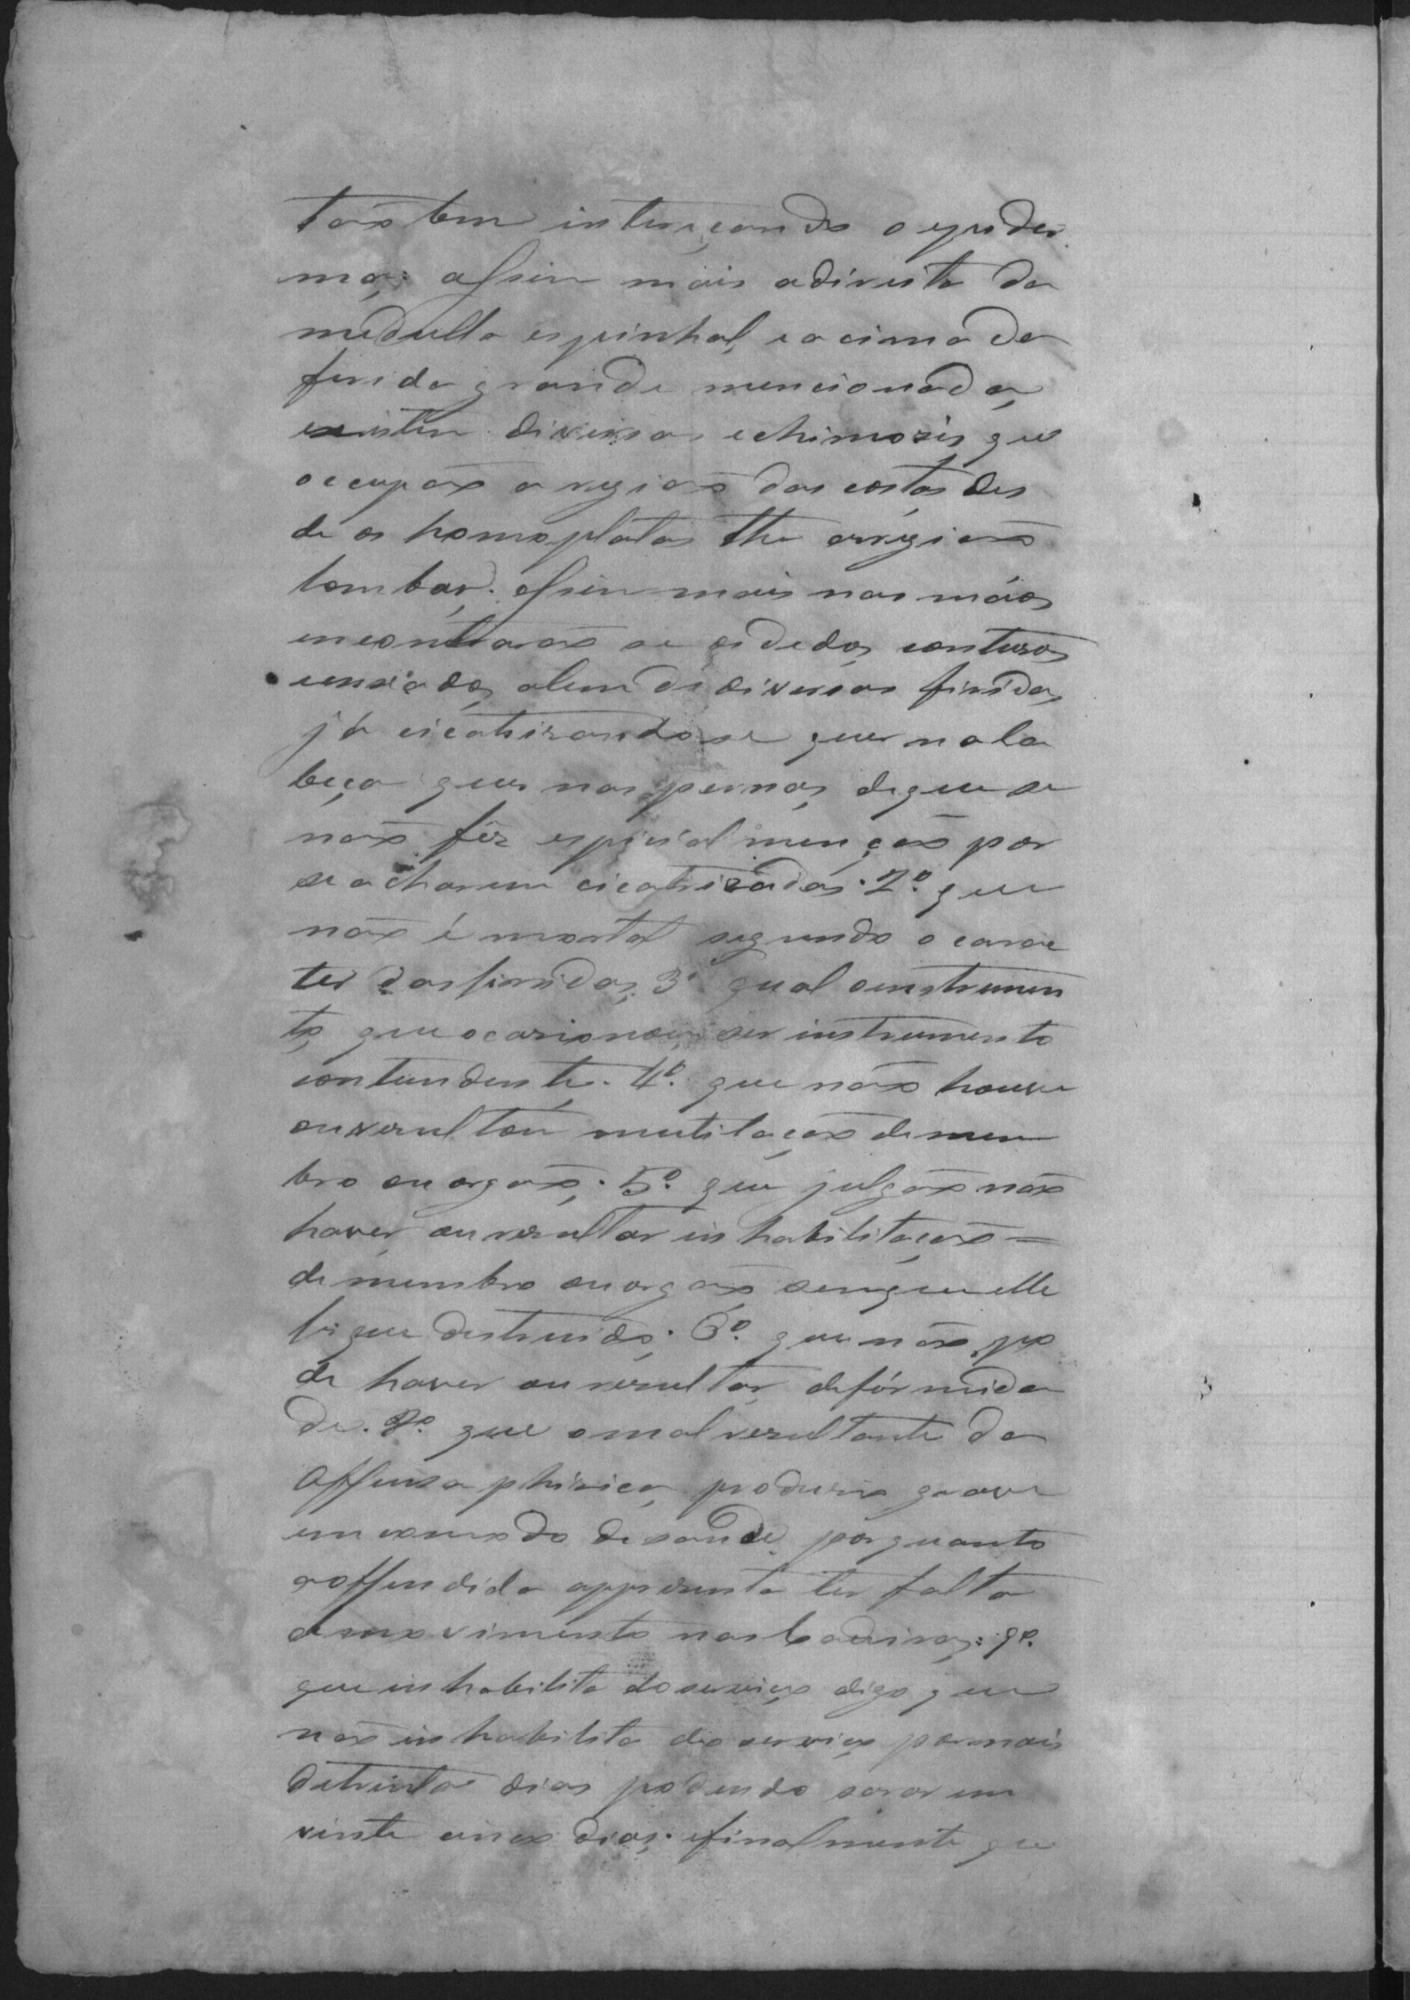 tão bem intereçando o epider
ma; assim mais adireita da
medulla espinhal, e acima da
ferida grande mencionada,
existem diversas echimozis, que
occupão a região das costas des
de os homoplatas thé arregião
lombar. Assim mais nas mãos
encontrarão se os dedos contusos
einxados, alem de diversas feridas,
já cicatrizando se quer na ca
beça quer nas pernas, de que se
não fêz especial menção por
se acharem cicatrizadas. 2º. que
não é mortal segundo o carac
ter das feridas; 3º qual oinstrumen
to, que ocazionou, ser instrumento
contundente. 4º. que não houve
ou resultou mutilação de mem
bro ou orgão; 5º. que julgão não
haver, ou resultar inhabilitação =
de membro ou orgão sem que elle
fique destruido; 6º. que não po
de haver ou resultar defórmida
de. 7º. que o mal resultante da
offensa phizica, produzio grave
encomodo de saude, porquanto
a offendida appresenta ter falta
de movimento nas cadeiras; 9º.
que inhabilita do serviço digo, que
não inhabilita do serviço por mais
de trinta dias podendo sarar em
vinte cinco dias; e finalmente que